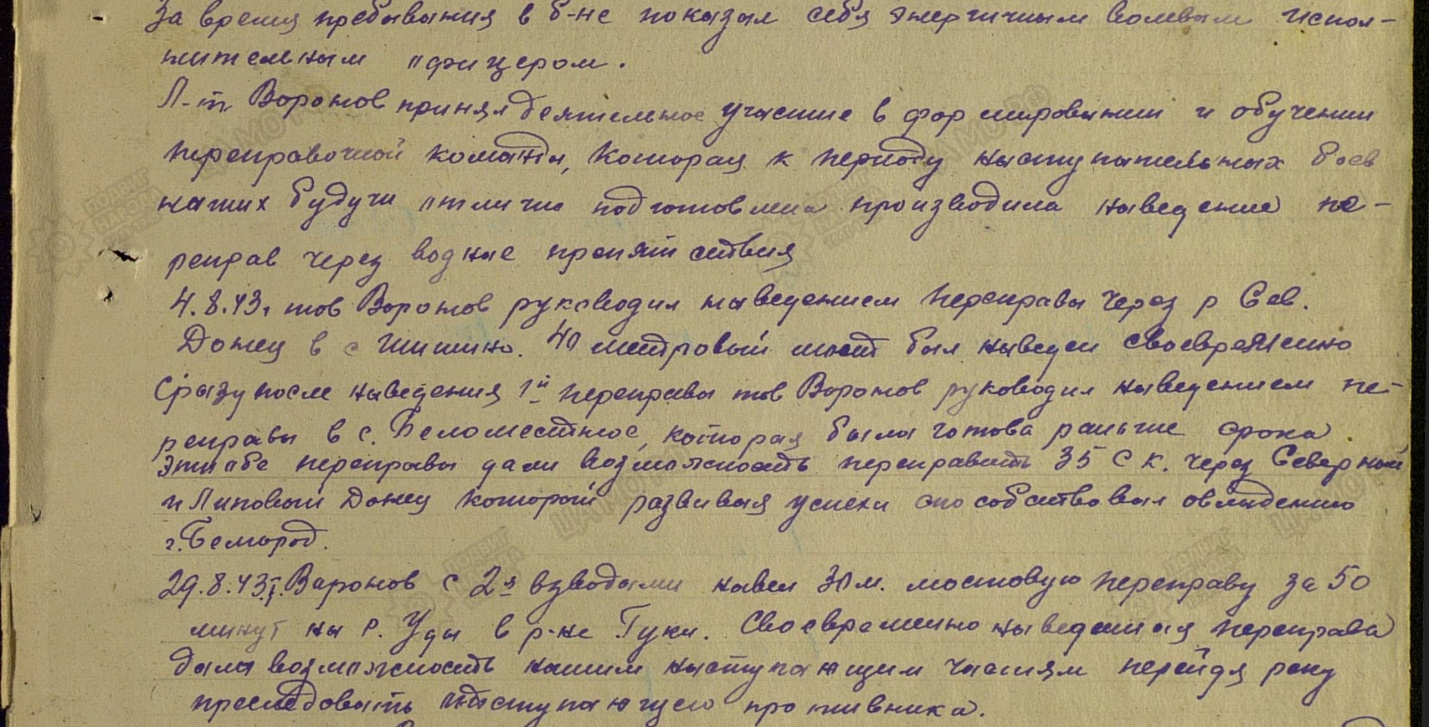 За время пребывания в б-не показал себя энергичным волевым испол-
нительным офицером.
Л-т Воронов принял деятельное участие в формировании и обучении
переправочной команды, которая к периоду наступательных боев
наших будучи отлично подготовлена производила наведение пе-
реправ через водные препятствия
4.8.43г тов Воронов руководил наведением переправы через р Сев.
Донец в с Шишино. 40 метровый мост был наведен своевременно
Сразу после наведения 1й переправы тов Воронов руководил наведением пе-
реправы в с. Беломестное, которая была готова раньше срока
Эти обе переправы дали возможность переправить 35 С К. через Северный
и Липовый Донец который развивая успехи способствовал овладению
г. Белгород.
29.8.43г. Воронов с 2я взводами навел 30 м. мостовую переправу за 50
минут на р. Уды в р-не Гуки. Своевременно наведенная переправа
дала возможность нашим наступающим частям перейдя реку
преследовать отступающего противника.
ПОДВИГ НАРОДА
ЦАМО РФ